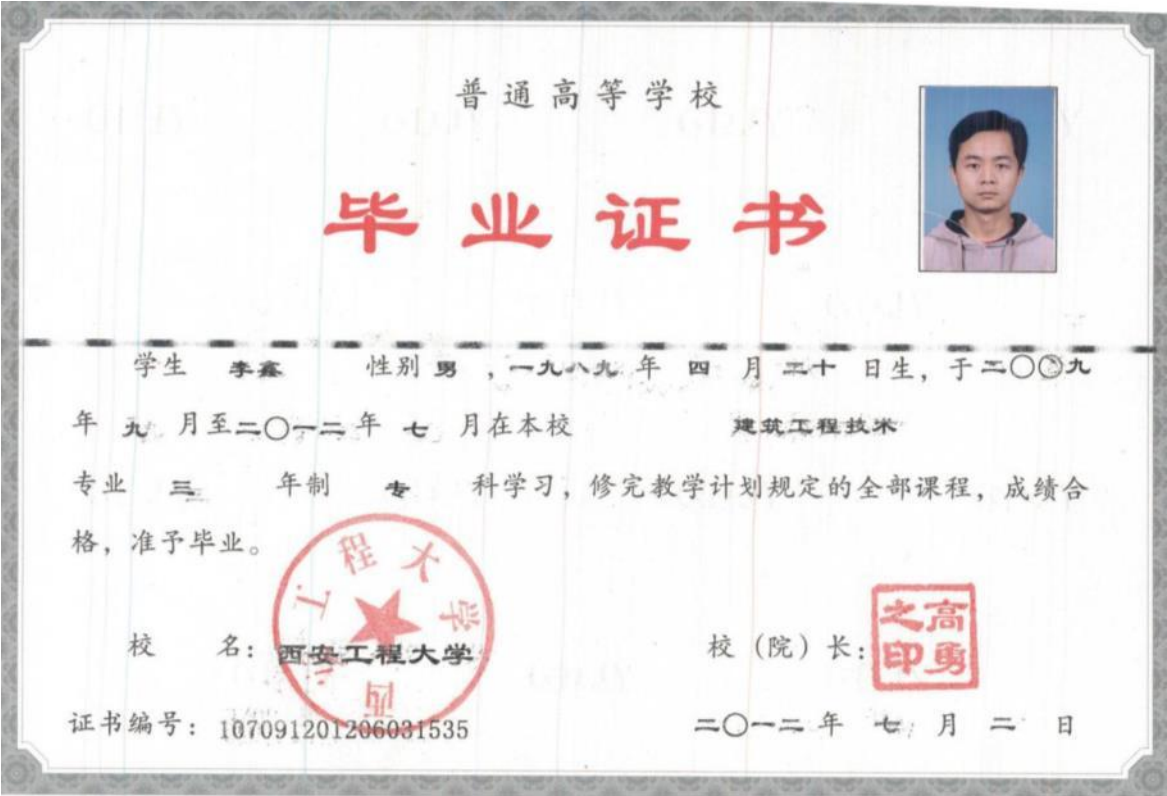 普通高等学校
毕业证书
学生 李鑫 性别 男 ,一九八九 年 四 月 二十 日生, 于二〇〇九
年 九 月至二〇一二年 七 月在本校 建筑工程技术
专业 三 年制 专 科学习, 修完教学计划规定的全部课程, 成绩合
格, 准予毕业。
校 名: 西安工程大学
西安工程大学
校 (院) 长:
高勇之印
证书编号: 107091201206031535
二〇一二年 七 月 二 日